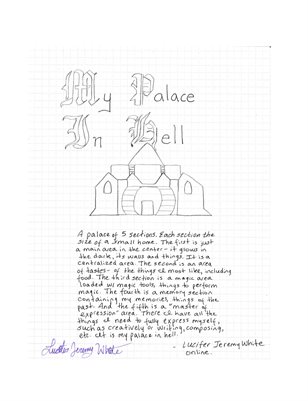 My Palace
In Hell
A palace of 5 sections. Each section the
size of a small home. The first is just
a main area in the center - it glows in
the dark, its walls and things. It is a
centralized area. The second is an area
of tastes - of the things I most like, including
food. The third section is a magic area
loaded w/ magic tools, things to perform
magic. The fourth is a memory section
containing my memories, things of the
past. And the fifth is a "master of
expression" area. There I have all the
things I need to fully express myself,
such as creatively or writing, composing,
etc. It is my palace in hell.
Lucifer Jeremy White
- Lucifer Jeremy White
online.